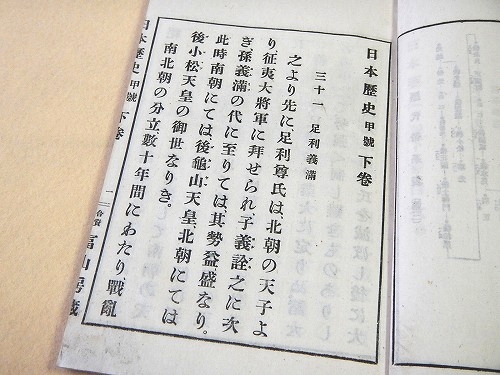 日本歷史 甲號 下卷
三十一 足利義滿
之より先に足利尊氏は、北朝の天子よ
り、征夷大將軍に拜せられ、子義詮之に次
ぎ、孫義滿の代に至りては、其勢益盛なり。
此時南朝にては、後龜山天皇北朝にては
後小松天皇の御世なりき。
南北朝の分立、數十年間にわたり、戰亂
日本歷史 甲號 下卷 一 合資 冨山房藏